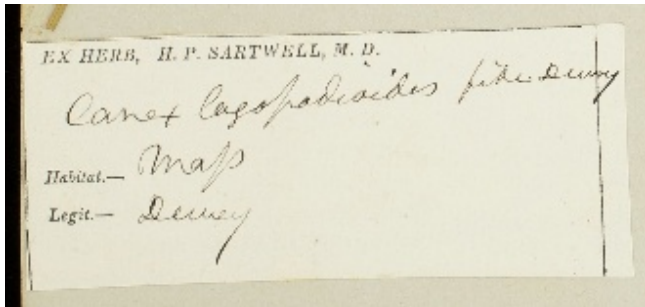 EX HERB, H. P. SARTWELL, M. D.
Carex lagopodioides fide Dewey
Habitat.— Mass
Legit.— Dewey